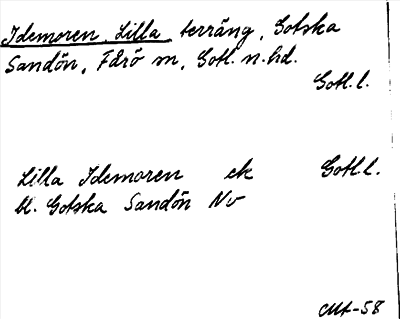 Idemoren, Lilla, terräng, Gotska
Sandön, Fårö sn, Gotl. n. hd.
Gotl. l.
Lilla Idemoren ek Gotl. l.
bl. Gotska Sandön Nv
-58